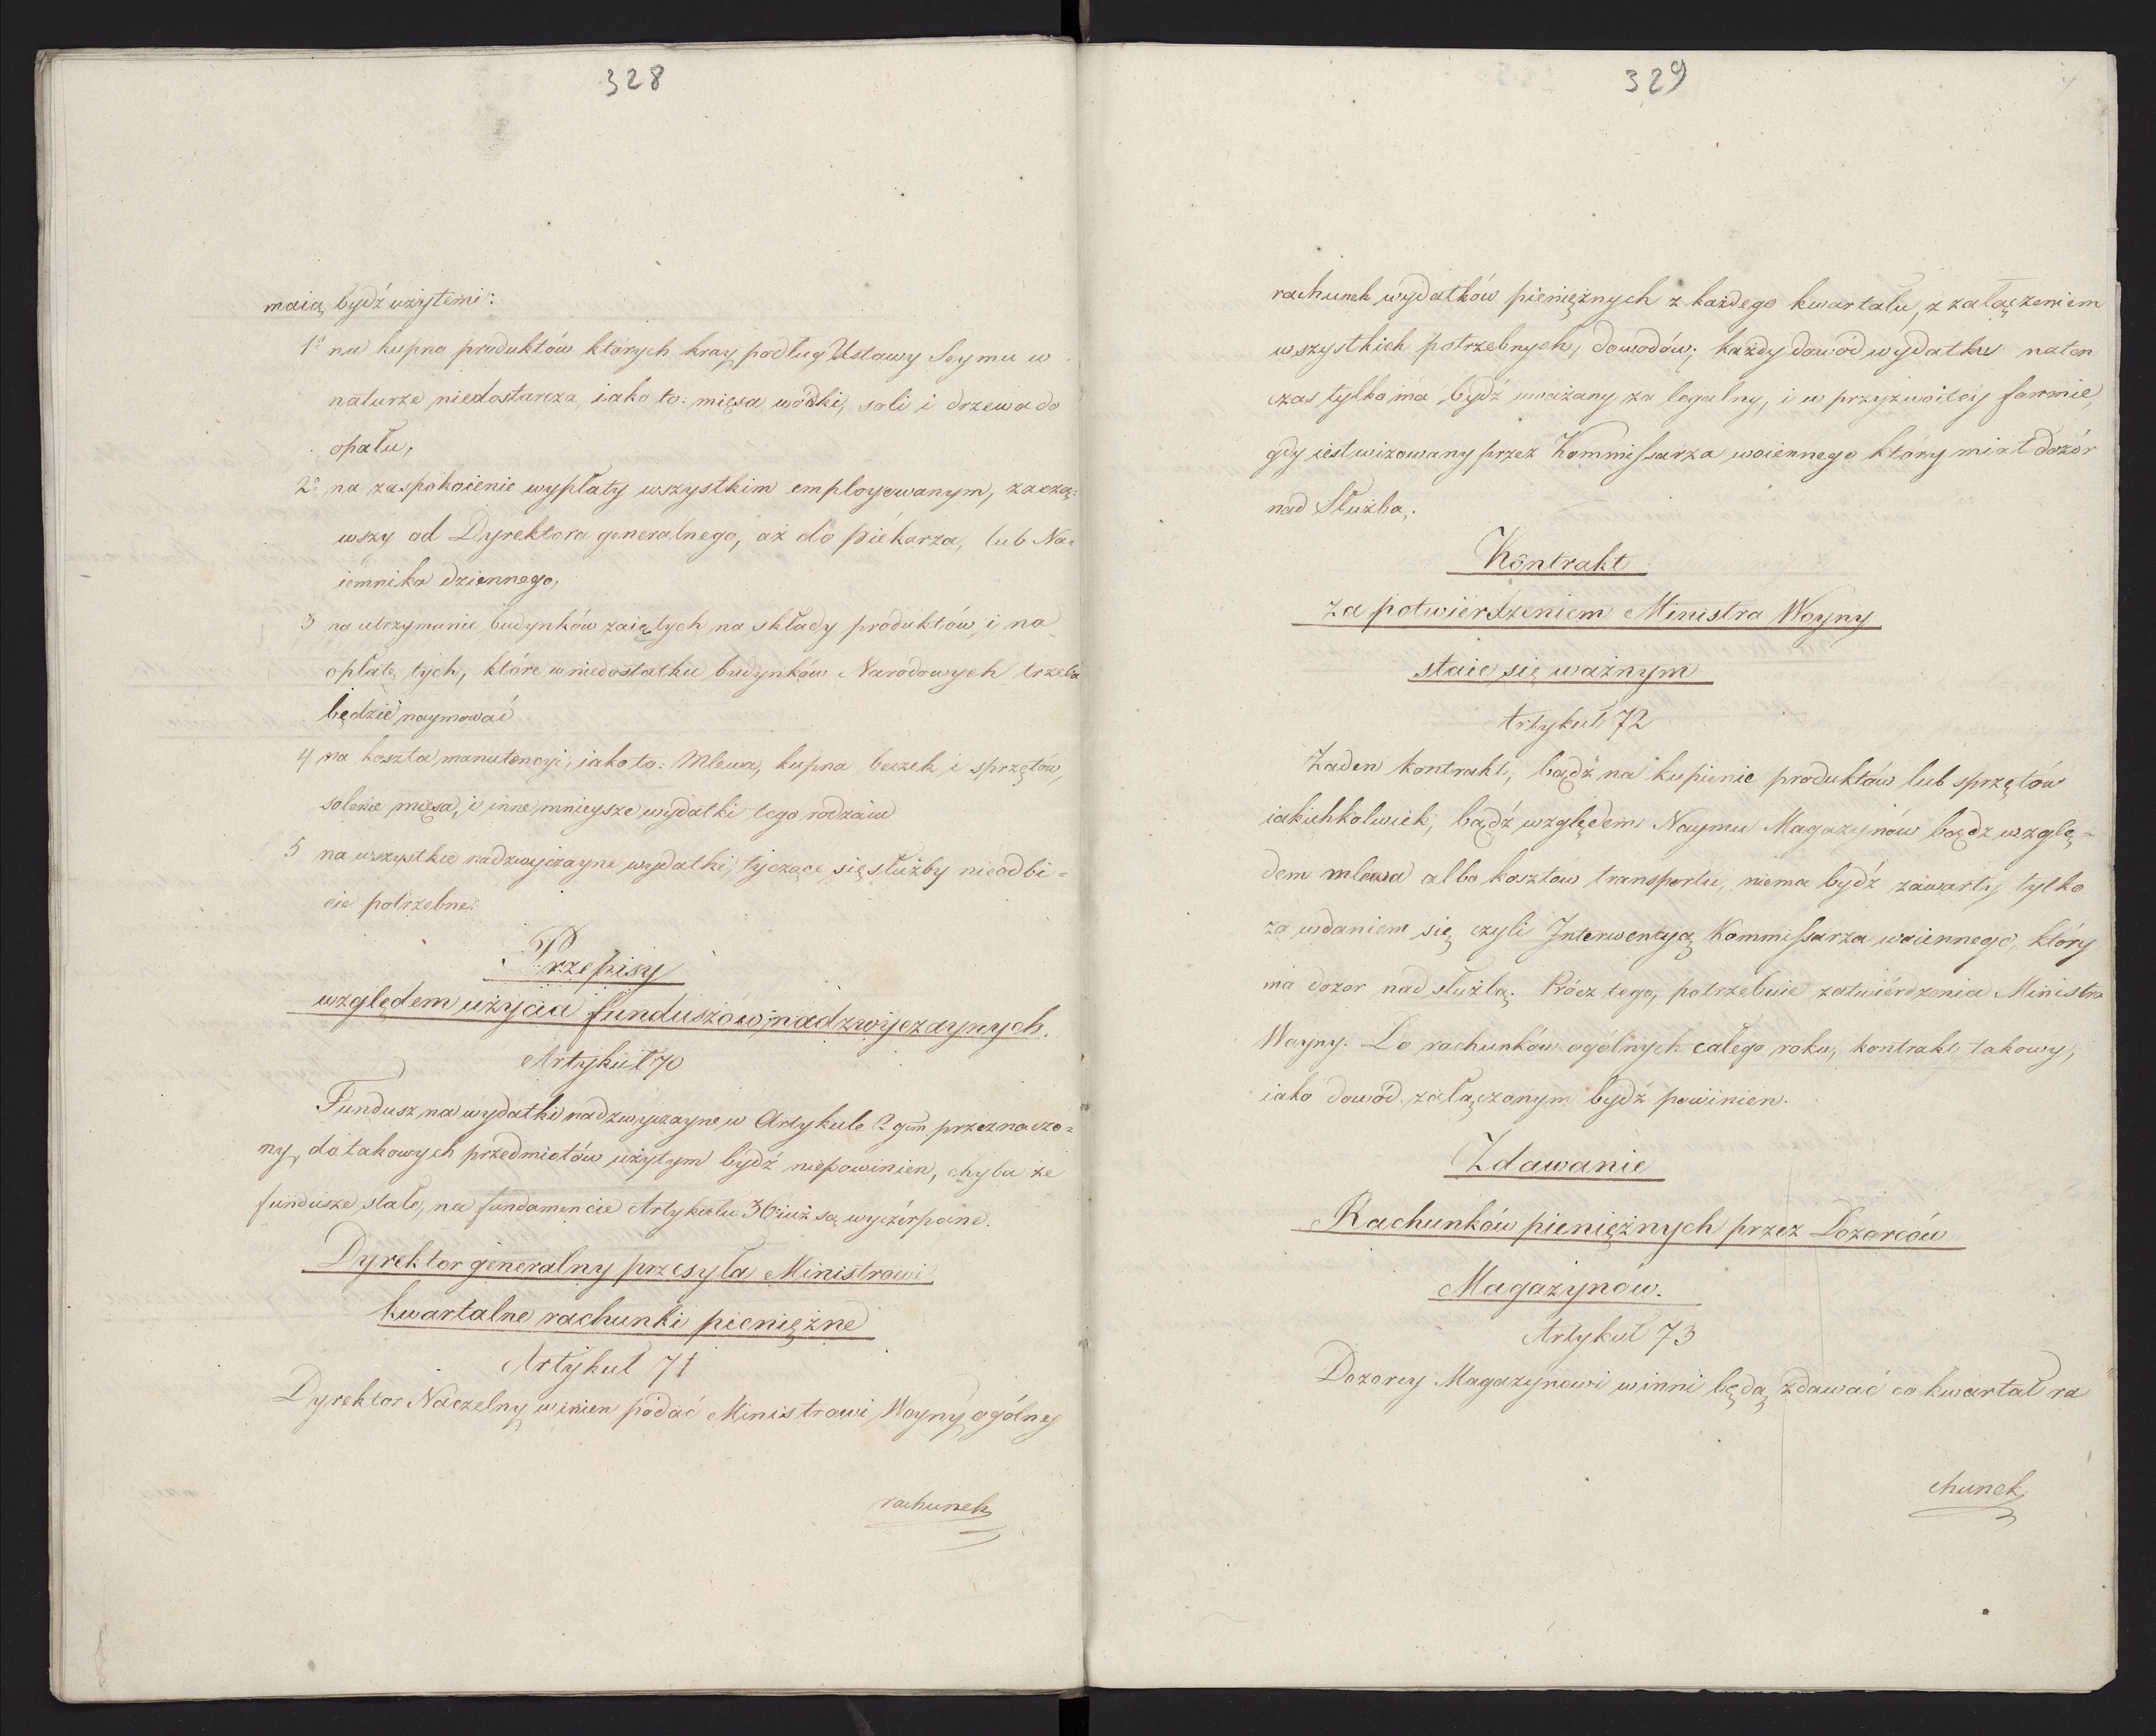 328
maią bydź użytemi:
1º na kupno produktów których kray podług Ustawy Seymu w
naturze niedostarcza, iako to: mięsa wódki, soli i drzewa do
opału,
2º na zaspokoienie wypłaty wszystkim employowanym, zaczą=
wszy od Dyrektora generalnego, aż do piékarza, lub Na=
iemnika dziennego,
3 na utrzymanie budynków zaiętych na składy produktów, i na
opłatę tych, które w niedostatku budynków Narodowych trzeba
będzie naymować
4 na koszta manutencyi, iako to: Mlewa, kupna beczek i sprzętów,
solenie mięsa, i inne mnieysze wydatki tego rodzaiu
5 na wszystkie nadzwyczayne wydatki, tyczące się służby nieodbi=
cie potrzebne.
Przepisy
względem użycia funduszów nadzwyczaynych.
Artykuł 70
Fundusz na wydatki nadzwyczayne w Artykule 2gim przeznaczo=
ny, do takowych przedmiotów użytym bydź niepowinien, chyba że
fundusze stałe, na fundamencie Artykułu 36 iuż są wyczérpane.
Dyrektor generalny przesyła Ministrowi
kwartalne rachunki pieniężne
Artykuł 71
Dyrektor Naczelny winien podać Ministrowi Woyny ogólny
rachunek
329
rachunek wydatków pieniężnych z każdego kwartału, z załączeniem
wszystkich potrzebnych, dowodów; każdy dowód wydatku naten
czas tylko ma bydź uważany za legalny, i w przyzwoitey formie,
gdy iest wizowany przez Kommissarza woiennego który miał dozór
nad Służbą.
Kontrakt
za potwierdzeniem Ministra Woyny
staie się ważnym
Artykuł 72
Żaden kontrakt, bądź na kupienie produktów lub sprzętów
iakichkolwiek, bądź względem Naymu Magazynów bądz wzglę=
dem mlewa albo kosztów transportu, niema bydź zawarty, tylko
za wdaniem się czyli Interwencyą Kommissarza woiennego, który
ma dozor nad służbą. Prócz tego, potrzebuie zatwiérdzenia Ministra
Woyny. Do rachunków ogólnych całego roku, kontrakt takowy,
iako dowód załączonym bydź powinien.
Zdawanie
Rachunków pieniężnych przez Dozorców
Magazynów.
Artykuł 73
Dozorcy Magazynowi winni będą zdawać co kwartał ra
chunek